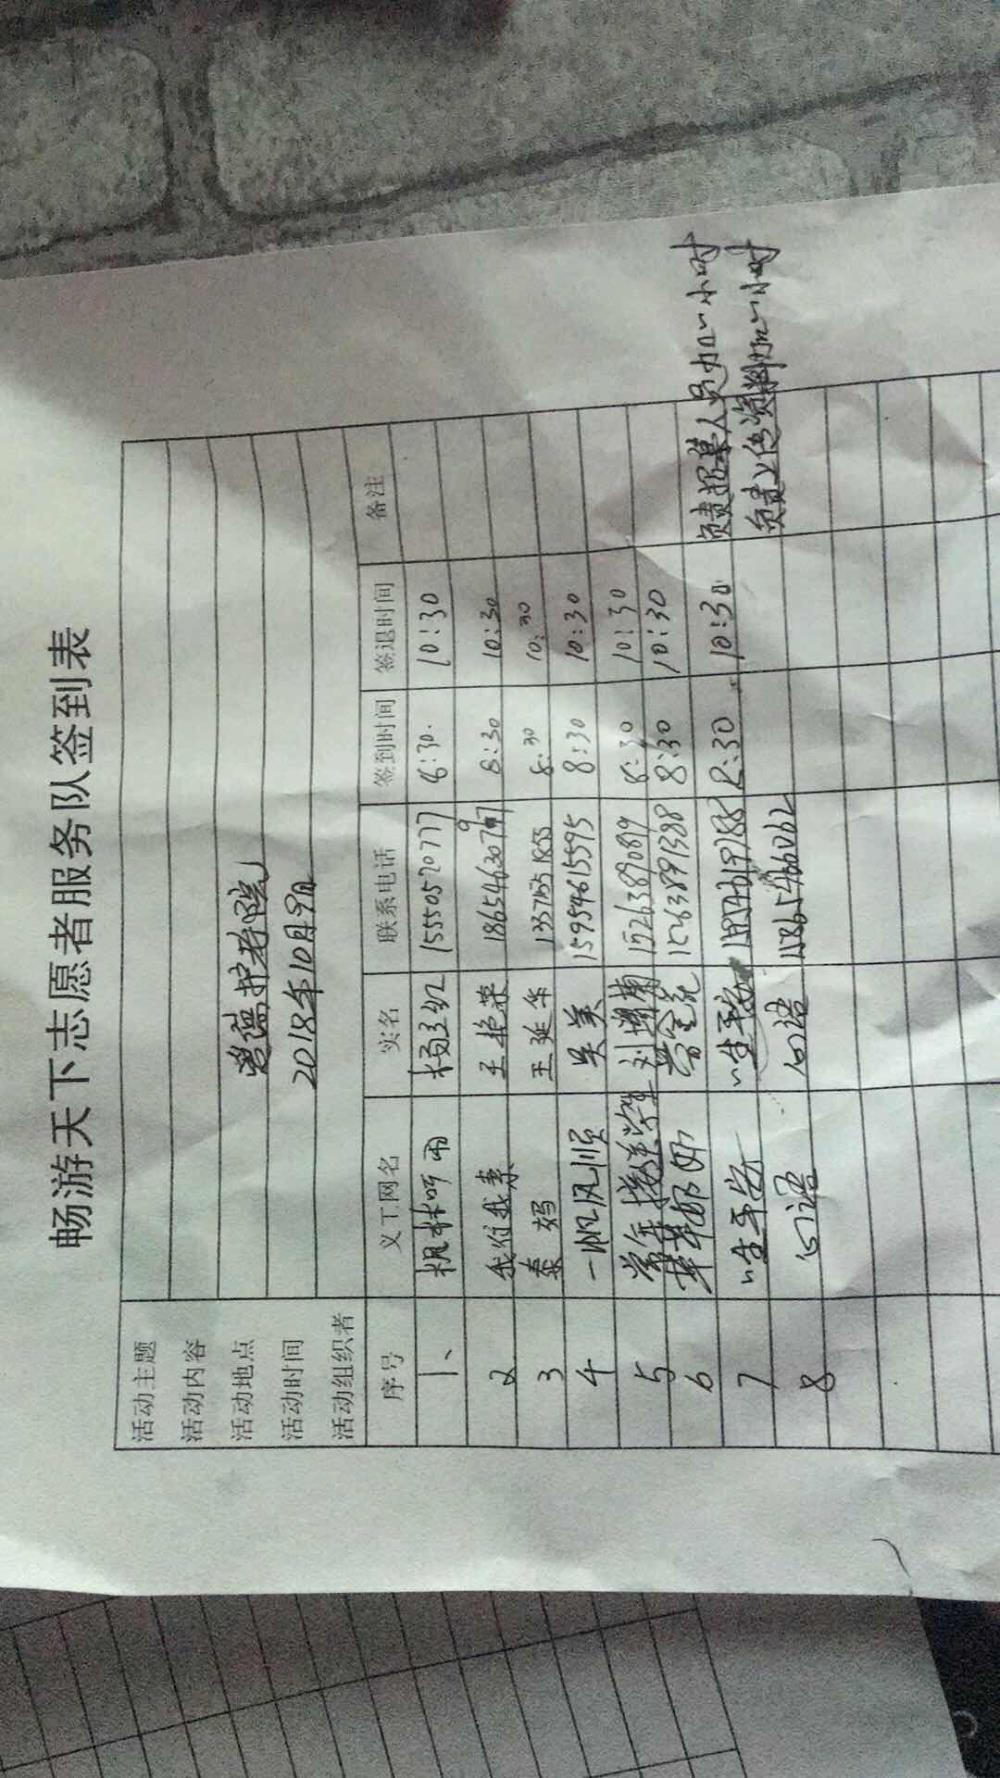 畅游天下志愿者服务队签到表
活动主题
活动内容
活动地点 护老院
活动时间 2018年10月9日
活动组织者
序号 义工网名 实名 联系电话 签到时间 签退时间 备注
1、 听雨 杨玉红 15550520777 8:30 10:30
2 我们我素 王艳荣 8:30 10:30
3 秦妈 王延华 8:30 10:30
4 一帆风顺 吴美 15954615595 8:30 10:30
5 刘 15263890819 8:30 10:30
6 苹果都好 15263891388 8:30 10:30
7 一生平安 一生平安 8:30 10:30 负责招募人员加一小时
8 心语 心语 负责上传资料加一小时